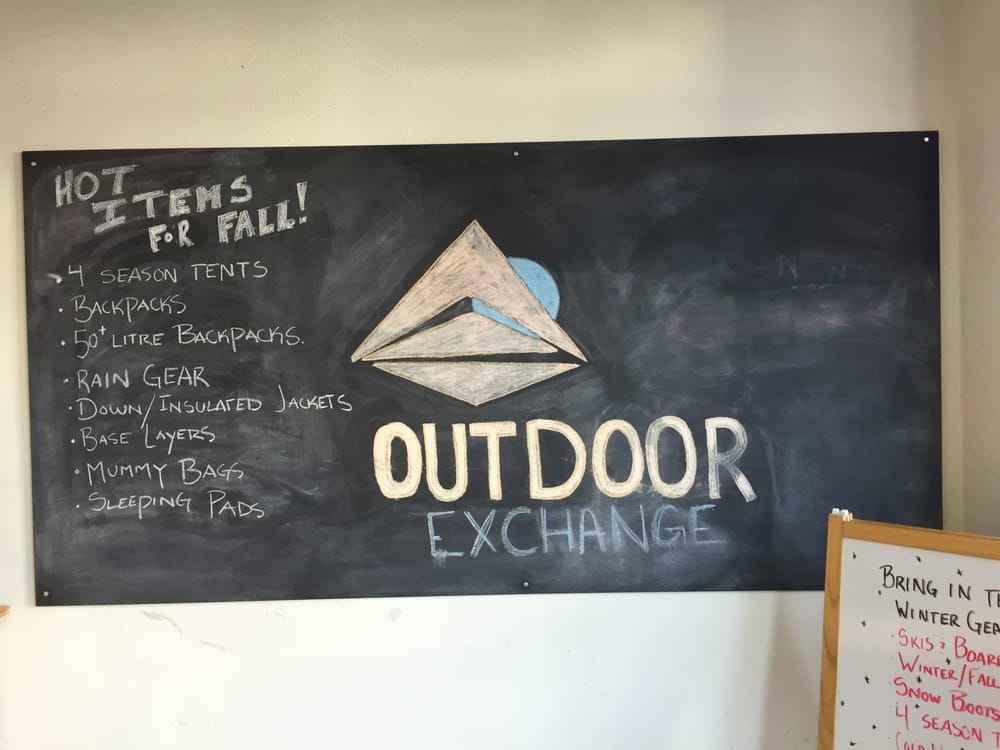 HOT
ITEMS
FOR FALL!
· 4 SEASON TENTS
· BACKPACKS
· 50+ LITRE BACKPACKS.
· RAIN GEAR
· DOWN/INSULATED JACKETS
· BASE LAYERS
· MUMMY BAGS
· SLEEPING PADS
OUTDOOR
EXCHANGE
BRING IN
WINTER
· SKIS &
WINTER/FALL
SNOW BOOTS
4 SEASON